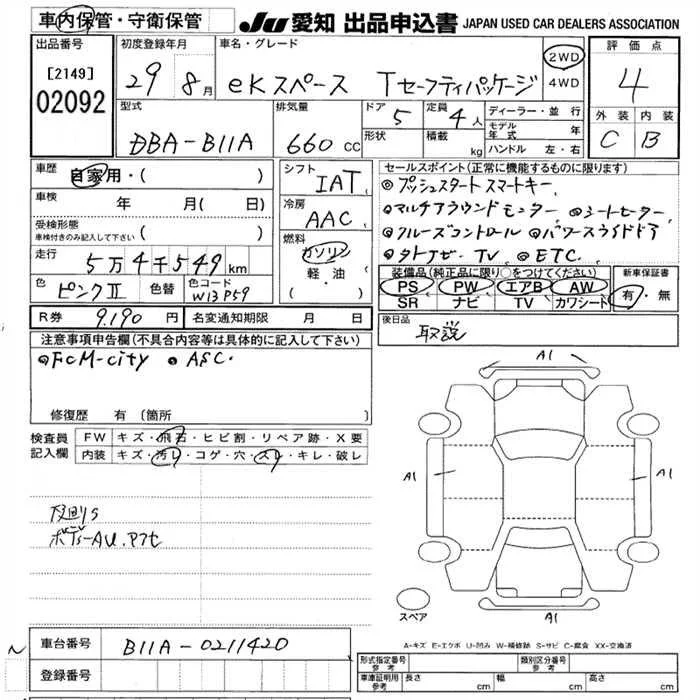 車内保管・守衛保管
JU 愛知 出品申込書 JAPAN USED CAR DEALERS ASSOCIATION
出品番号
[2149]
02092
初度登録年月
29 8月
車名・グレード
eKスペース Tセーフティパッケージ
2WD
4WD
評価点
4
外装 内装
C B
型式
DBA-B11A
排気量
660 CC
ドア 5
形状
定員 4人
積載 kg
ディーラー・並行
モデル年式 年
ハンドル 左・右
車歴 自家用・( )
車検 年 月( 日)
受検形態
車検付きのみ記入して下さい ( )
走行 5万4千549km
色 ピンクⅡ 色替 色コード W13P59
シフト
IAT
冷房
AAC
燃料
ガソリン
軽・油
( )
セールスポイント(正常に機能するものに限ります)
◎プッシュスタート スマートキー、
◎マルチアラウンドモニター ◎シートヒーター、
◎クルーズコントロール ◎パワースライドドア
◎TV、 ◎ETC.
装備品(純正品に限り○をつけてください)
PS PW エアB AW
SR ナビ TV カワシート
新車保証書
有・無
R券 9,190 円 名変通知期限 月 日
後日品
取説
注意事項申告欄(不具合内容等は具体的に記入して下さい)
◎FCM-city ◎ASC.
修復歴 有(箇所 )
検査員
記入欄
FW キズ・飛石・ヒビ割・リペア跡・X要
内装 キズ・汚れ・コゲ・穴・スレ・キレ・破レ
下廻りS
ボディーAU.アプセ
A1
A1
A1
A1
スペア
A-キズ E-エクボ U-凹み W-補修跡 S-サビ C-腐食 XX-交換済
車台番号 B11A-0211420
登録番号
形式指定番号 参考
類別区分番号 参考
車庫証明用 参考 長さ cm 幅 cm 高さ cm